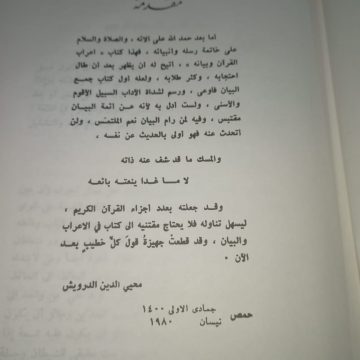 مقدمة
اما بعد حمد الله على آلائه ، والصلاة والسلام
على خاتمة رسله وانبيائه ، فهذا كتاب « اعراب
القرآن وبيانه » ، اتيح له ان يظهر بعد ان طال
احتجابه ، وكثر طلابه ، ولعله اول كتاب جمع
البيان فأوعى ، ورسم لشداة الآداب السبيل الأقوم
والأسنى ، ولست ادل به لأنه من ائمة البيان
مقتبس ، وفيه لمن رام البيان نعم الملتمس ، ولن
اتحدث عنه فهو أولى بالحديث عن نفسه ،
والمسك ما قد شف عنه ذاته
لا ما غدا ينعته بائعه
وقد جعلته بعدد اجزاء القرآن الكريم ،
ليسهل تناوله فلا يحتاج مقتنيه الى كتاب في الاعراب
والبيان ، وقد قطعتْ جهيزةُ قولَ كلِّ خطيبٍ بعد
الآن ٠
محيي الدين الدرويش
حمص جمادى الاولى ١٤٠٠
نيسان ١٩٨٠